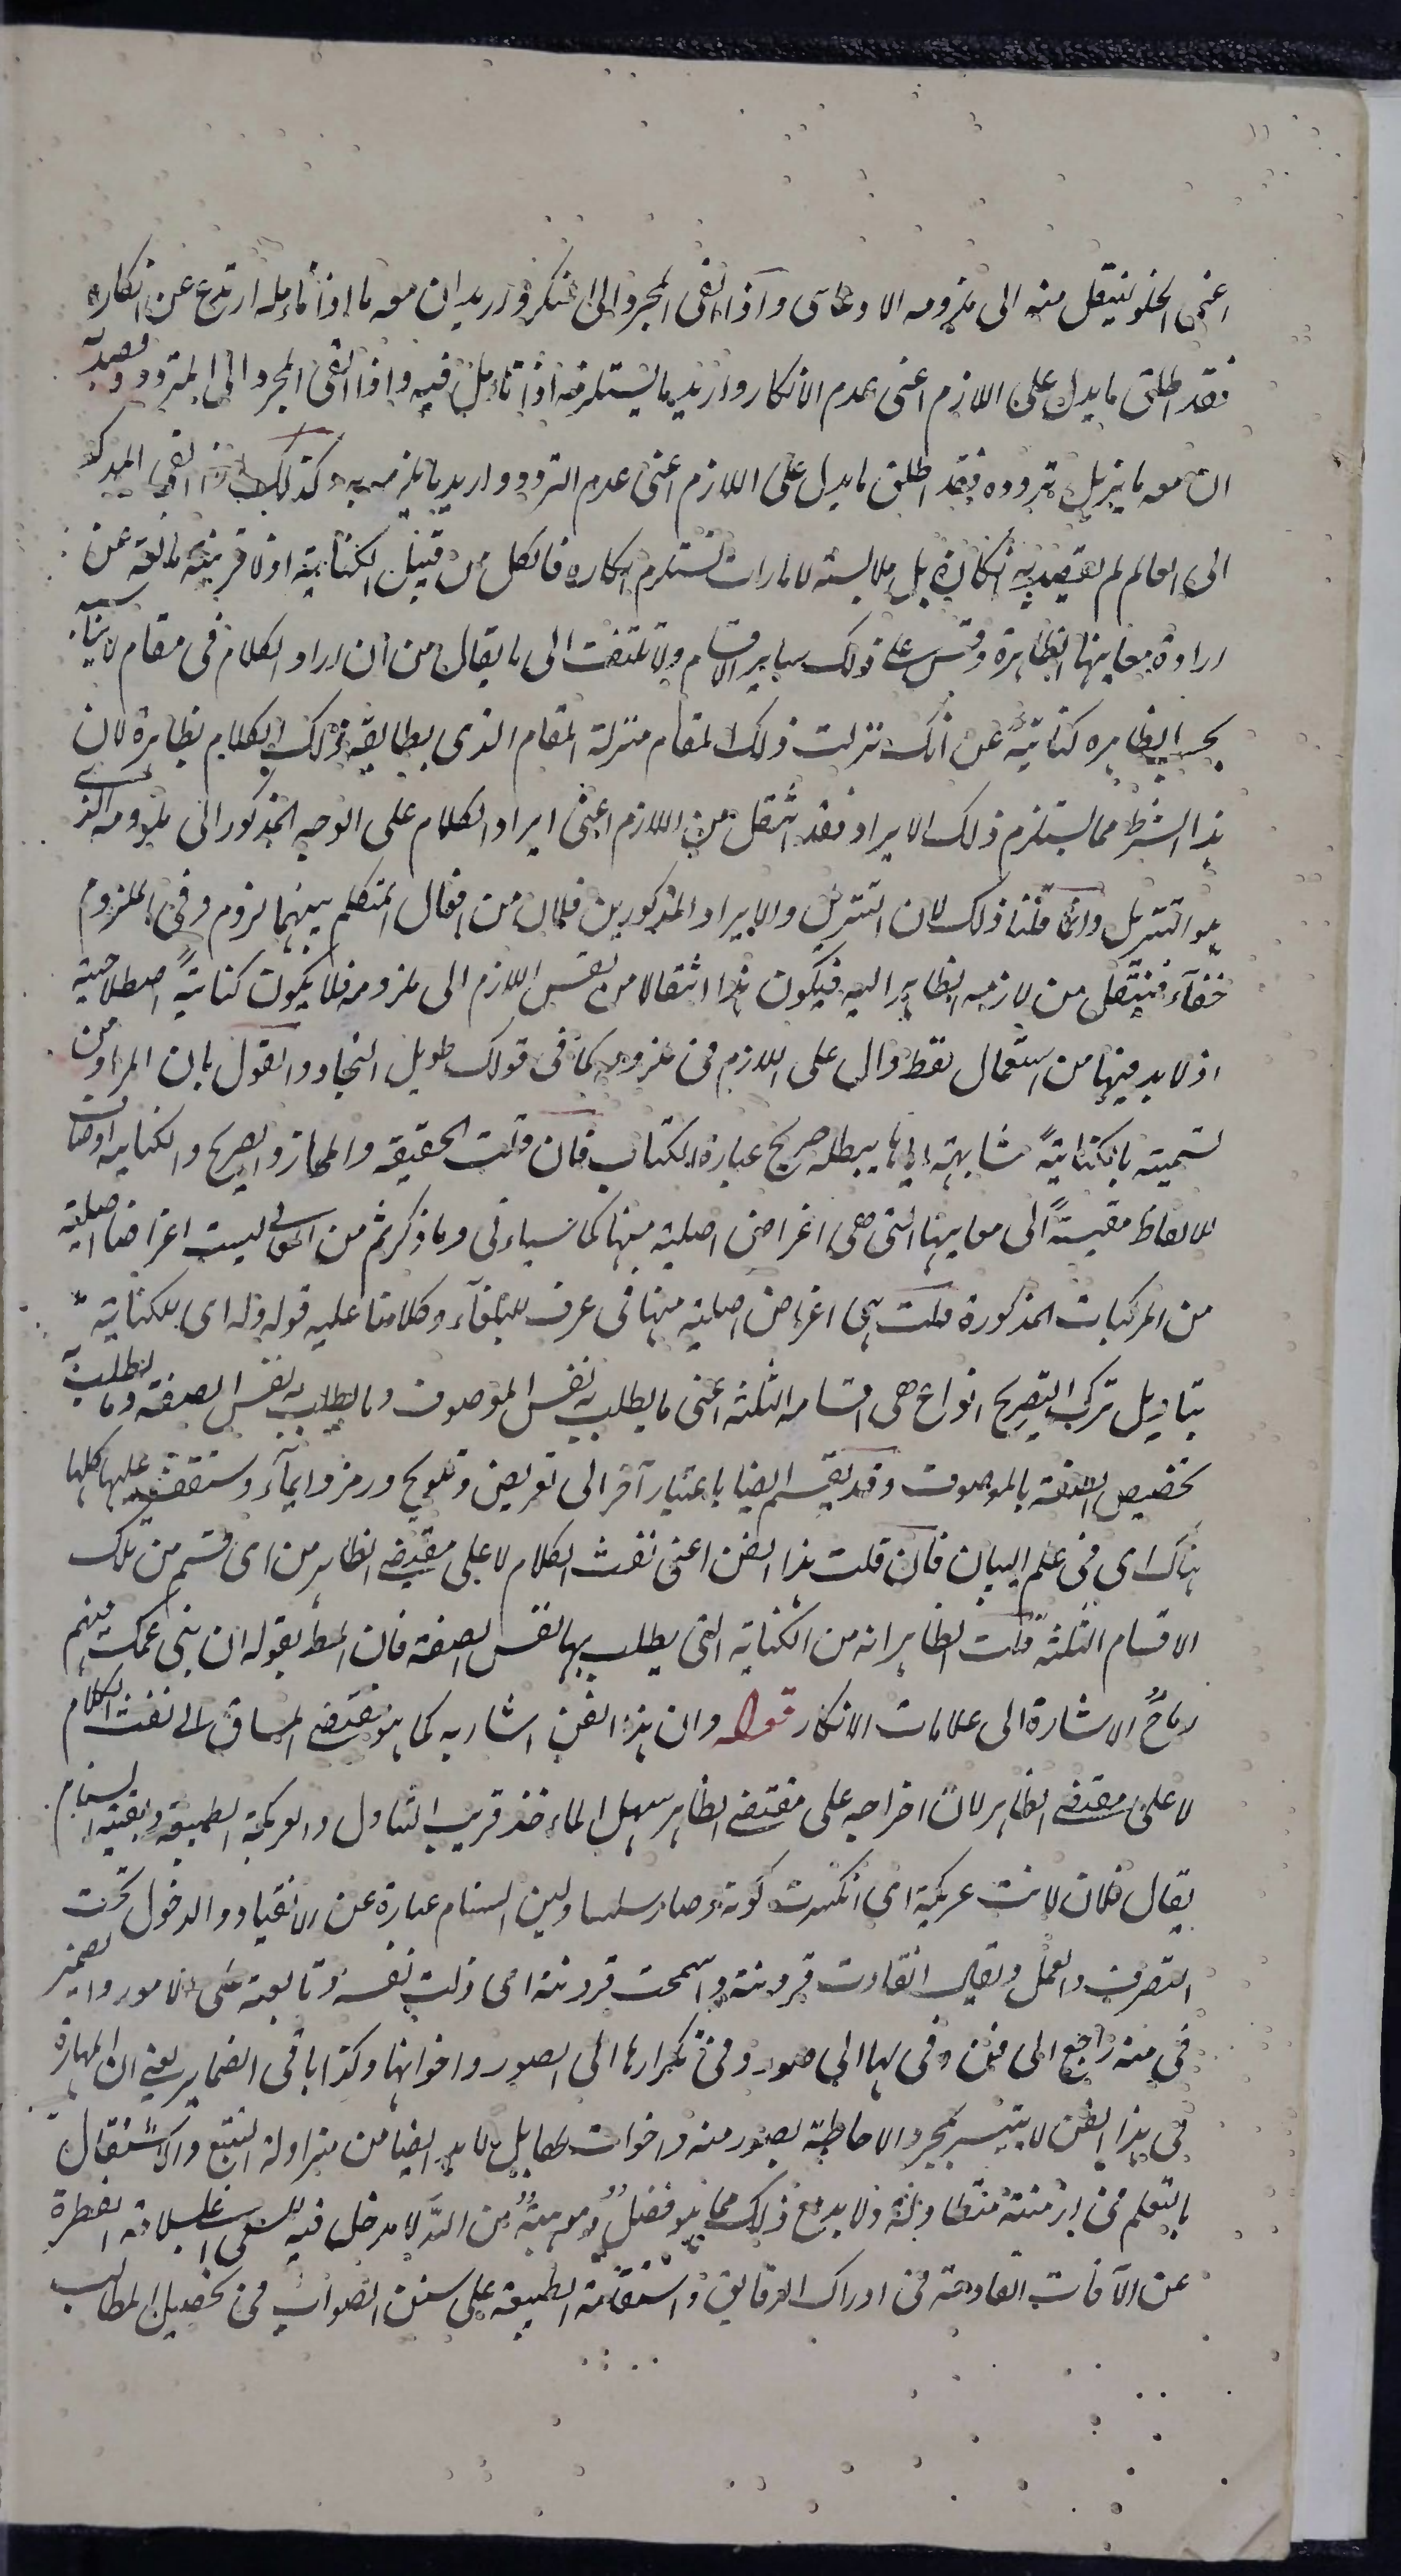 اعنى الخلو ينتقل منه الى ملزومه الادعائى واذا القى المجرد الى المنكر واريد ان معه ما اذا تأمله ارتدع عن انكاره
فقد اطلق ما يدل على اللازم اعنى عدم الانكار واريد ما يستلزمه اذا تأمل فيه واذا القى المجرد الى المتردد وقصد به
ان معه ما يزيل تردده فقد اطلق ما يدل على اللازم اعنى عدم التردد واريد ما يلزمه به وكذلك اذا القى المؤكد
الى العالم لم يقصد به انكاره بل ملابسته لامارات تستلزم انكاره فالكل من قبيل الكناية اذ لا قرينة مانعة عن
ارادة معانيها الظاهرة وقس على ذلك ساير الاقسام ولا تلتفت الى ما يقال من ان ايراد الكلام فى مقام لا يناسبه
بحسب الظاهر كناية عن انك نزلت ذلك المقام منزلة المقام الذى يطابقه ذلك الكلام بظاهره لان
هذا الشرط مما يستلزم ذلك الايراد فقد انتقل من اللازم اعنى ايراد الكلام على الوجه المذكور الى ملزومه الذى
هو التنزيل وانما قلنا ذلك لان التنزيل والايراد المذكورين فعلان من افعال المتكلم بينهما لزوم وفى الملزوم
خفاء فينتقل من لازمه الظاهر اليه فيكون هذا انتقالا من نفس اللازم الى ملزومه فلا يكون كناية اصطلاحية
اذ لا بد فيها من استعمال لفظ دال على اللازم فى ملزومه كما فى قولك طويل النجاد والقول بان المراد من
تسميته بالكناية مشابهته اياها يبطله صريح عبارة الكتاب فان قلت الحقيقة والمجاز والصريح والكناية اوصاف
للالفاظ مقيسة الى معانيها التى هى اغراض اصلية منها كما سيأتى وما ذكرتم من المعانى ليست اغراضا اصلية
من المركبات المذكورة قلت هى اغراض اصلية منها فى عرف البلغاء وكلامنا عليه قوله وله اى للكناية
بتاويل ترك التصريح انواع هى اقسامه الثلثة اعنى ما يطلب به نفس الموصوف وما يطلب به نفس الصفة وما يطلب به
تخصيص الصفة بالموصوف وقد يقسم ايضا باعتبار آخر الى تعريض وتلويح ورمز وايماء وستقف عليها كلها
هناك اى فى علم البيان فان قلت هذا الفن اعنى نفث الكلام لا على مقتضى الظاهر من اى قسم من تلك
الاقسام الثلثة قلت الظاهر انه من الكناية التى يطلب بها نفس الصفة فان المط بقوله ان بنى عمك فيهم
رماح الاشارة الى علامات الانكار قوله وان هذا الفن اشار به كما هو مقتضى المساق الى نفث الكلام
لا على مقتضى الظاهر لان اخراجه على مقتضى الظاهر سهل المأخذ قريب التناول والعريكة الطبيعة وبقية السنام
يقال فلان لانت عريكته اى انكسرت نخوته وصار سلسا ولين السنام عبارة عن الانقياد والدخول تحت
التصرف والعمل ويقال انقادت قرونته واسمحت قرونته اى ذلت نفسه وتابعته على الامور والضمير
فى منه راجع الى فن وفى لها الى صور وفى تكرارها الى الصور واخواتها وكذا باقى الضماير يعنى ان المهارة
فى هذا الفن لا يتيسر بمجرد الاحاطة بصور منه واخوات لها بل لا بد ايضا من مزاولة التتبع والاشتغال
بالتعلم فى ازمنة متطاولة ولا بد مع ذلك مما هو فضل وموهبة من الله لا مدخل فيه للسعى اعنى سلامة الفطرة
عن الآفات القادحة فى ادراك الدقايق واستقامة الطبيعة على سنن الصواب فى تحصيل المطالب